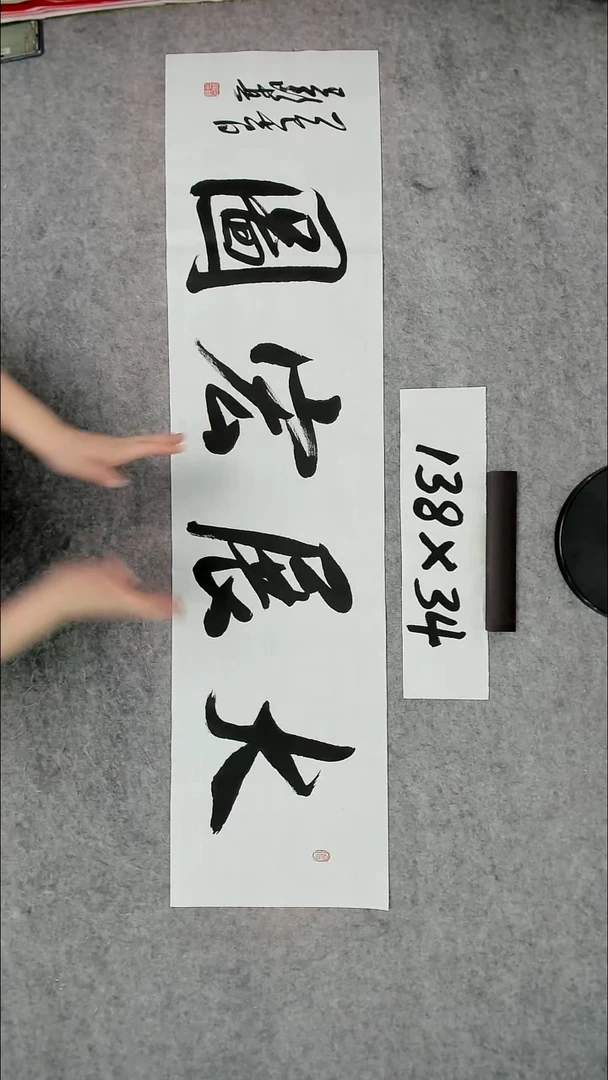 大展宏圖
138×34